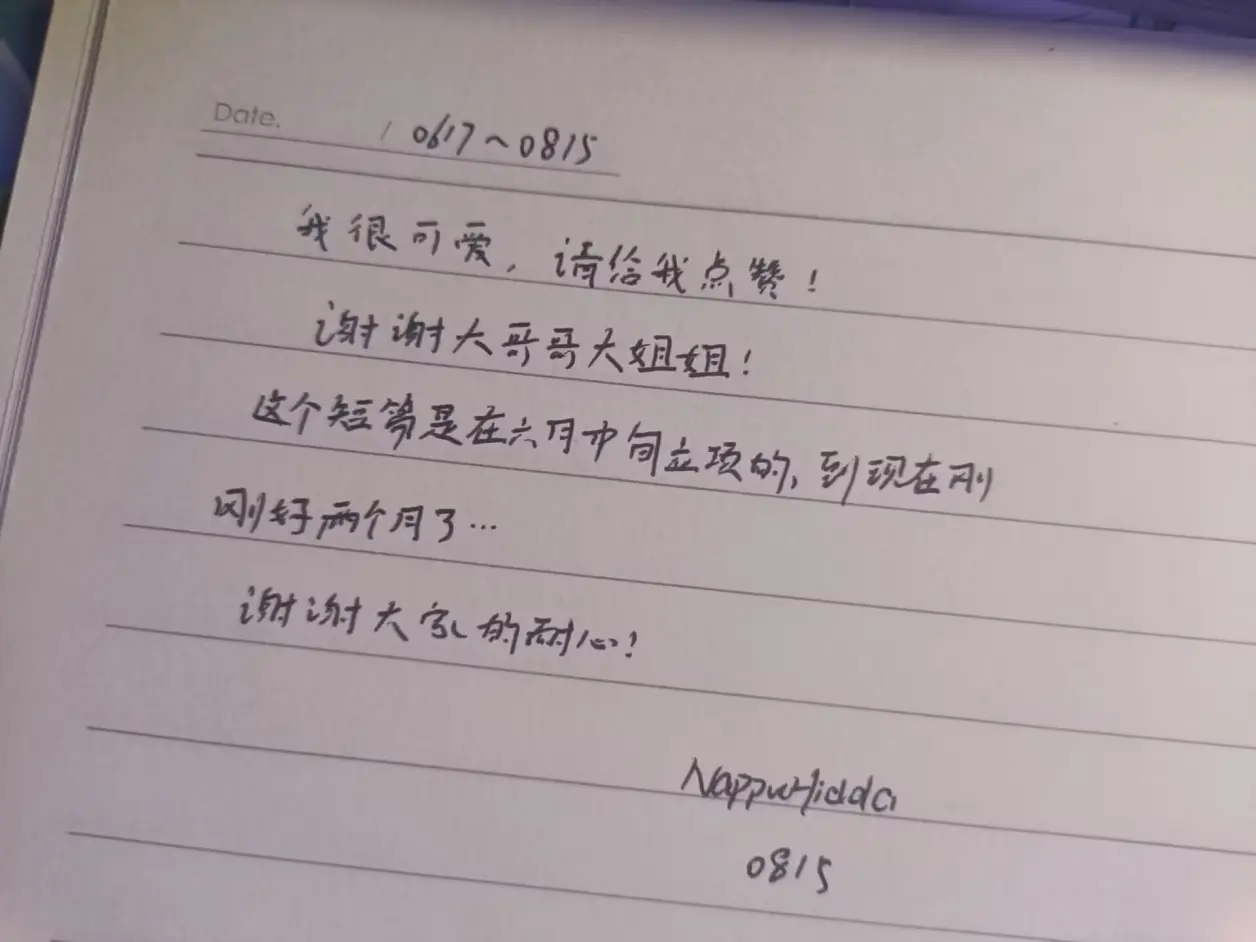 Date. / 0617~0815
我很可爱，请给我点赞！
谢谢大哥哥大姐姐！
这个短篇是在六月中旬立项的，到现在刚
刚好两个月了…
谢谢大家的耐心！
NappuHidda
0815